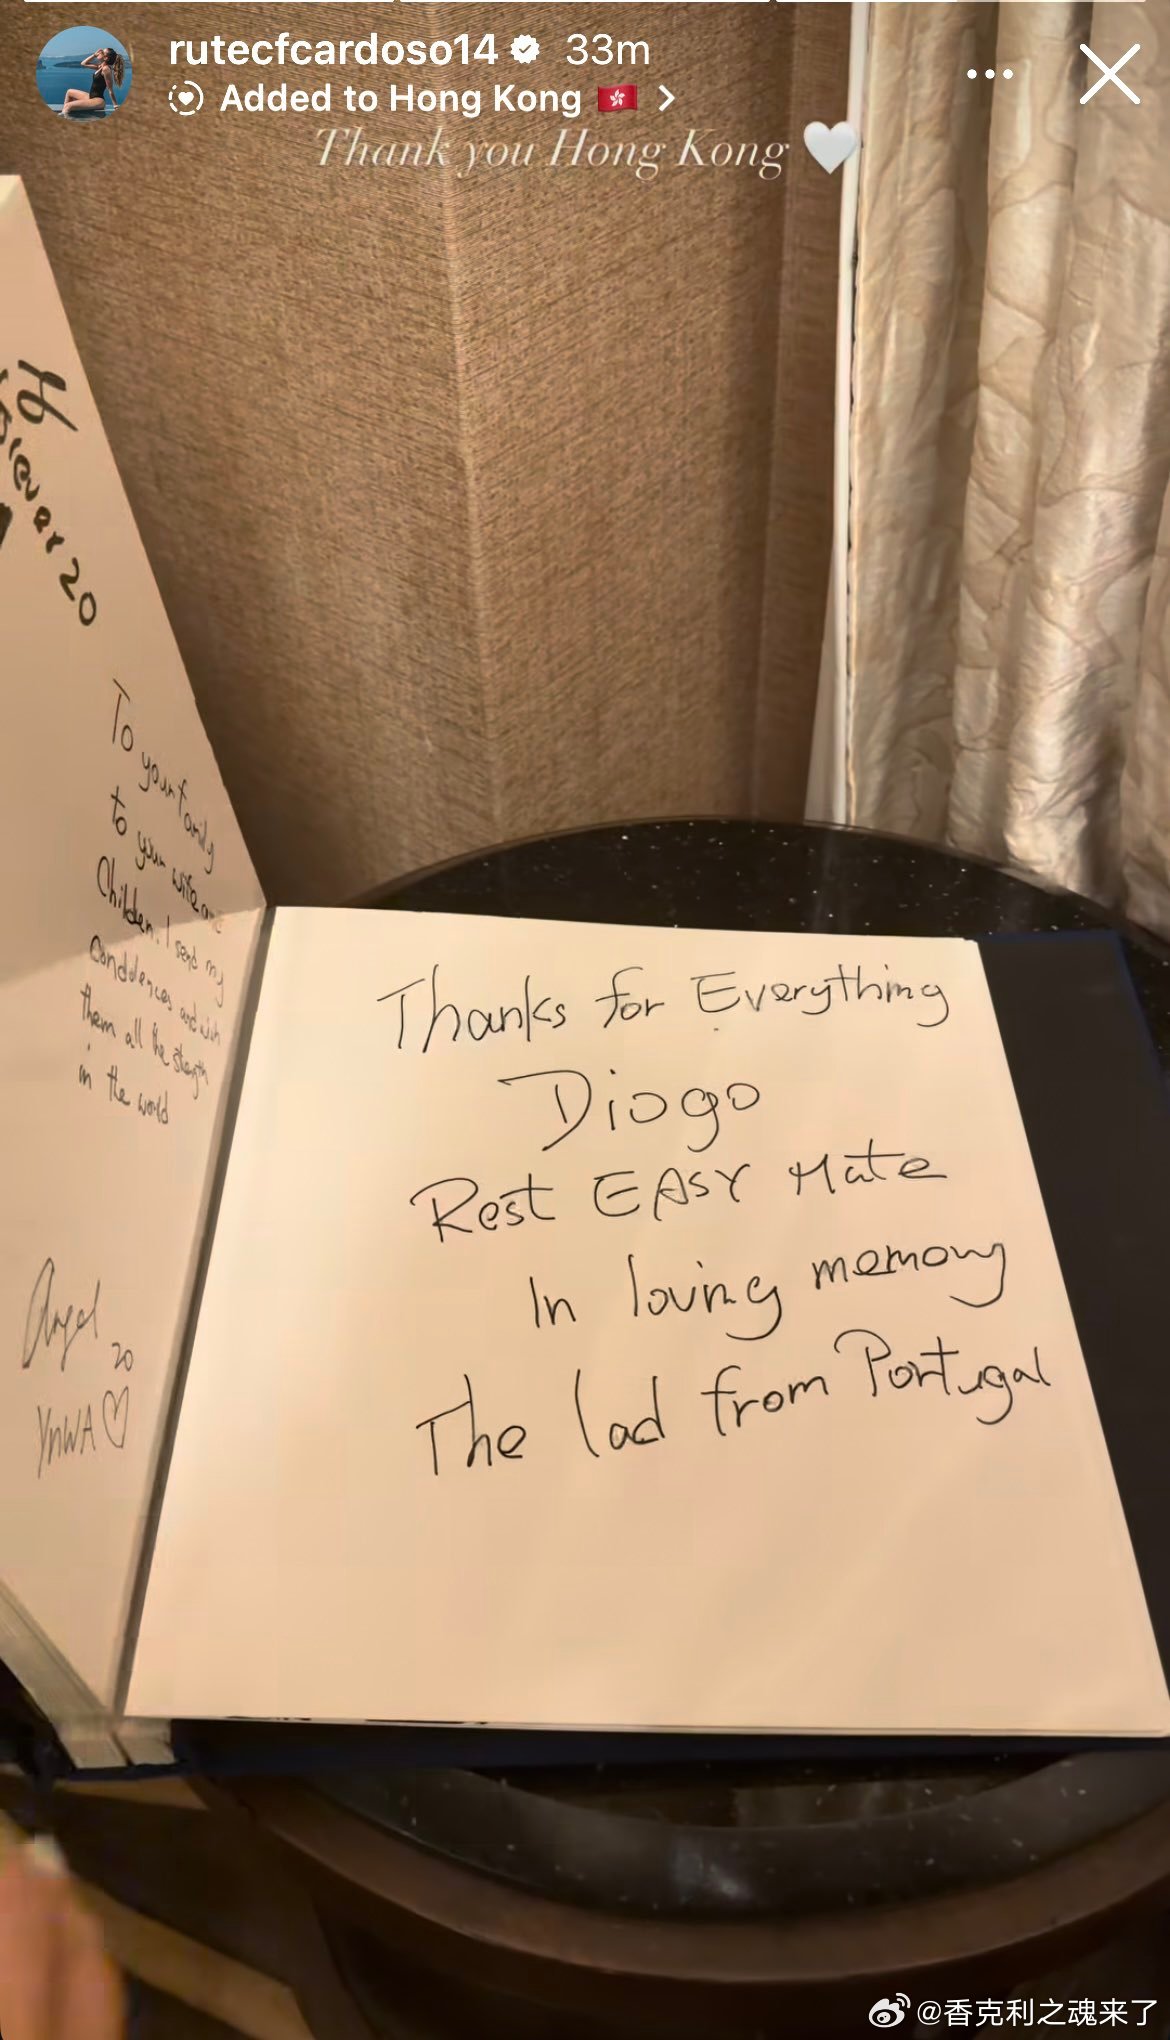 rutecfcardoso14 33m
Added to Hong Kong 🇭🇰 >
Thank you Hong Kong 🤍
20
To your family
to your wife and
Children. I send my
condolences and wish
them all the strength
in the world
Angel
20
YNWA♡
Thanks for Everything
Diogo
Rest EASY Mate
In loving memory
The lad from Portugal
@香克利之魂来了